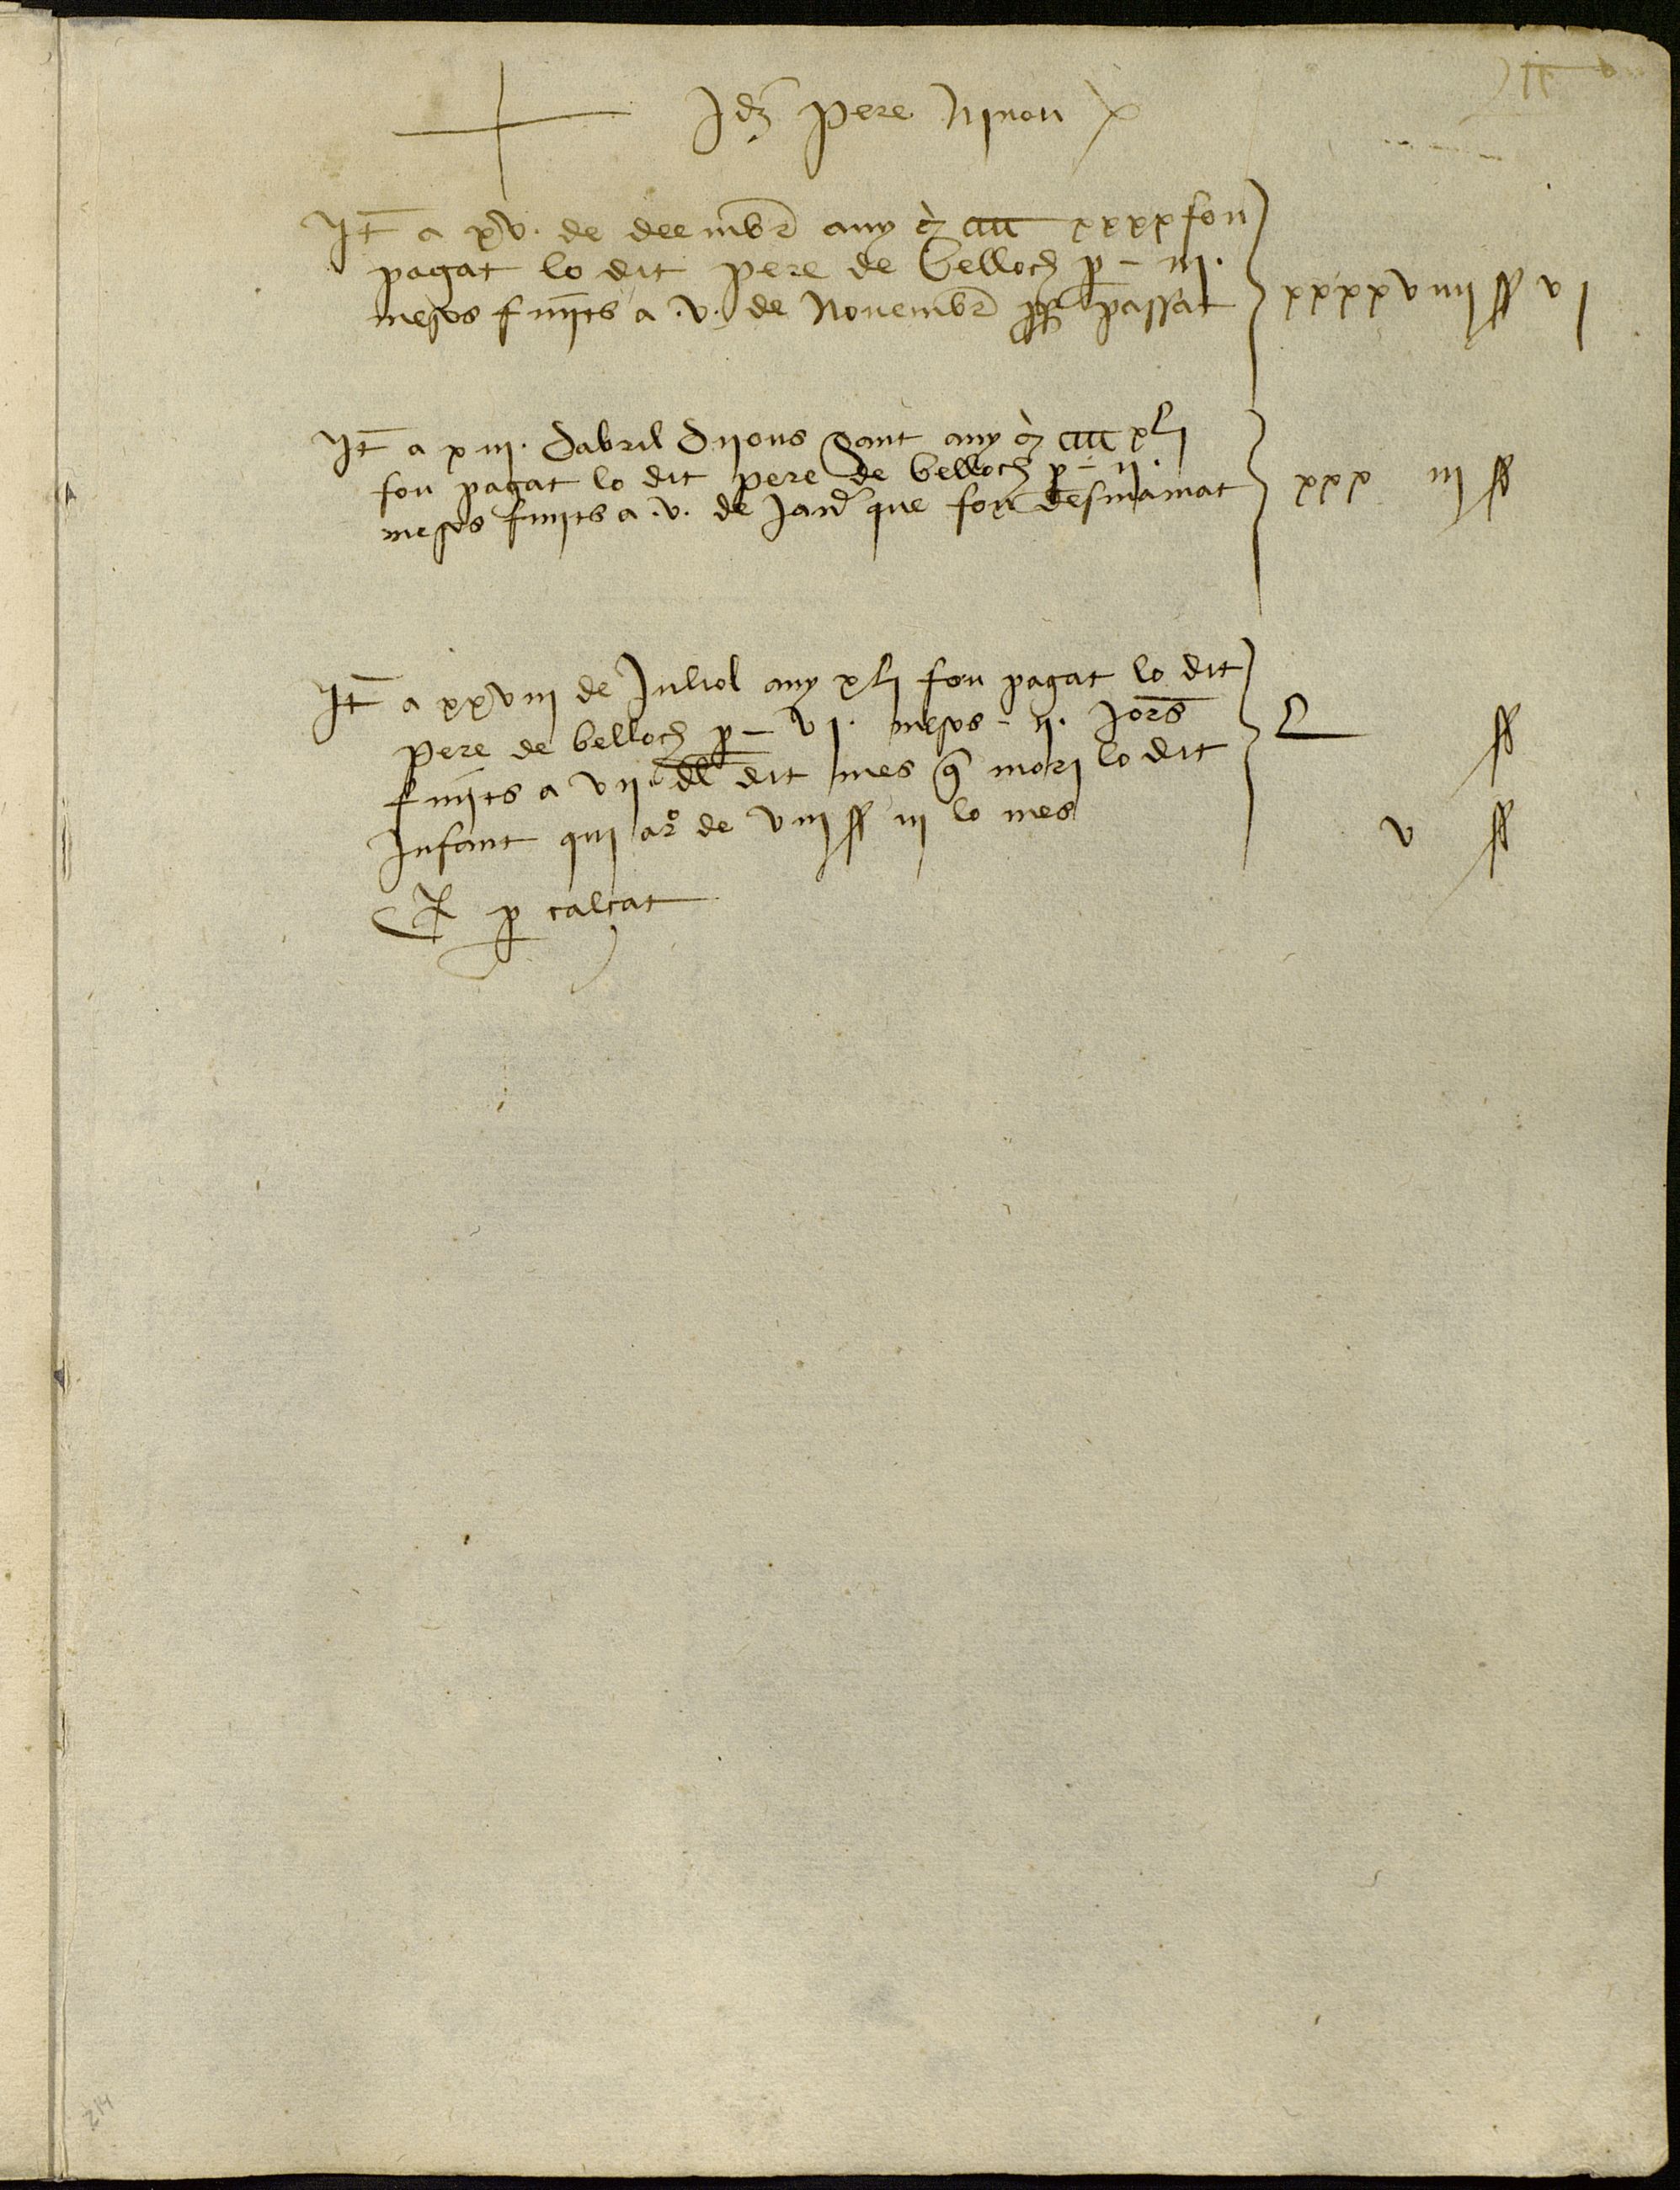 Jdz pere Ninou
It a xv. de deembr any Mcccc xxxx fou
pagat lo dit pere de belloch p iii.
mesos finits a .v. de Nouembr pp passat
xxxxviiii ss vi
It a xiii. dabril diious sant any Mcccc xli
fou pagat lo dit pere de belloch p ii.
mesos finits a .v. de Janr que fou desmamat
xxx iii ss
It a xxviii de Juliol any xli fou pagat lo dit
pere de belloch p vi. mesos ii. jors
finits a vii. dl dit mes q mori lo dit
Infant qui a ro de viii ss iii lo mes
L ss
E p calçat
v ss
214